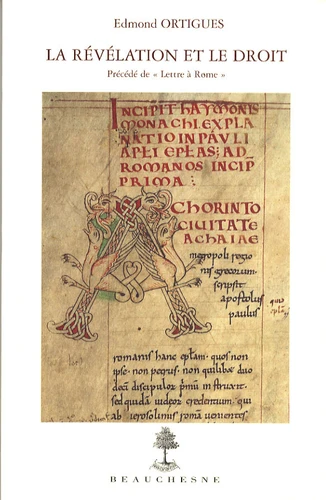 Edmond ORTIGUES
LA RÉVÉLATION ET LE DROIT
Précédé de « Lettre à Rome »
INCIPIT HAYMONIS
MONACHI EXPLA
NATIO IN PAULI
APLI EPLAS; AD
ROMANOS INCIP
PRIMA:
A CHORINTO
CIUITATE
ACHAIAE
megropoli regio
nis grecorum
scripsit
apostolus
paulus
romanis hanc eplam. quos non
ipse. non petrus. non quilibet duo
decī discipulor
sed quidā iudeor credentium. qui
ab ierosolimis romā uenientes
BEAUCHESNE